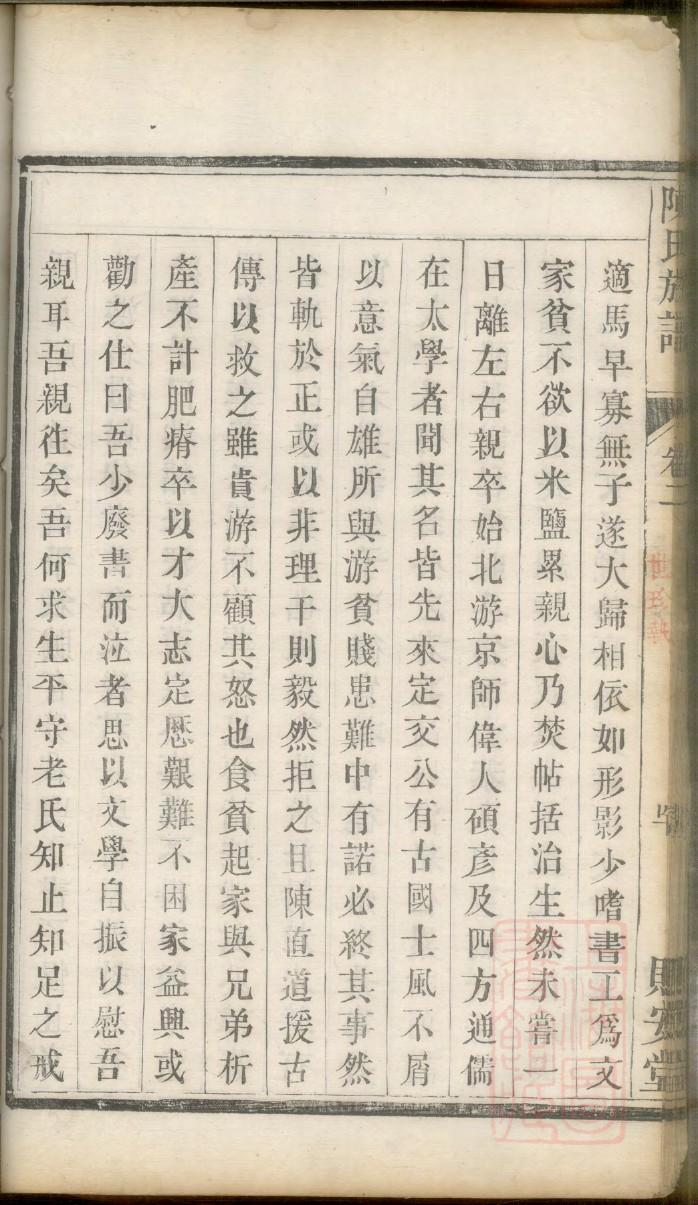 陳氏族譜
卷二
世珍執
則安堂
適馬早寡無子遂大歸相依如形影少嗜書工爲文
家貧不欲以米鹽累親心乃焚帖括治生然未嘗一
日離左右親卒始北游京師偉人碩彥及四方通儒
在太學者聞其名皆先來定交公有古國士風不屑
以意氣自雄所與游貧賤患難中有諾必終其事然
皆軌於正或以非理干則毅然拒之且陳直道援古
傳以救之雖貴游不顧其怒也食貧起家與兄弟析
產不計肥瘠卒以才大志定歷艱難不困家益興或
勸之仕曰吾少廢書而泣者思以文學自振以慰吾
親耳吾親徃矣吾何求生平守老氏知止知足之戒